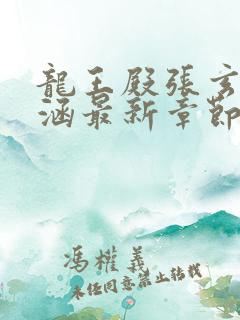 龍王殿張玄
涵最新章節
馮權義
未任同意禁止轉載